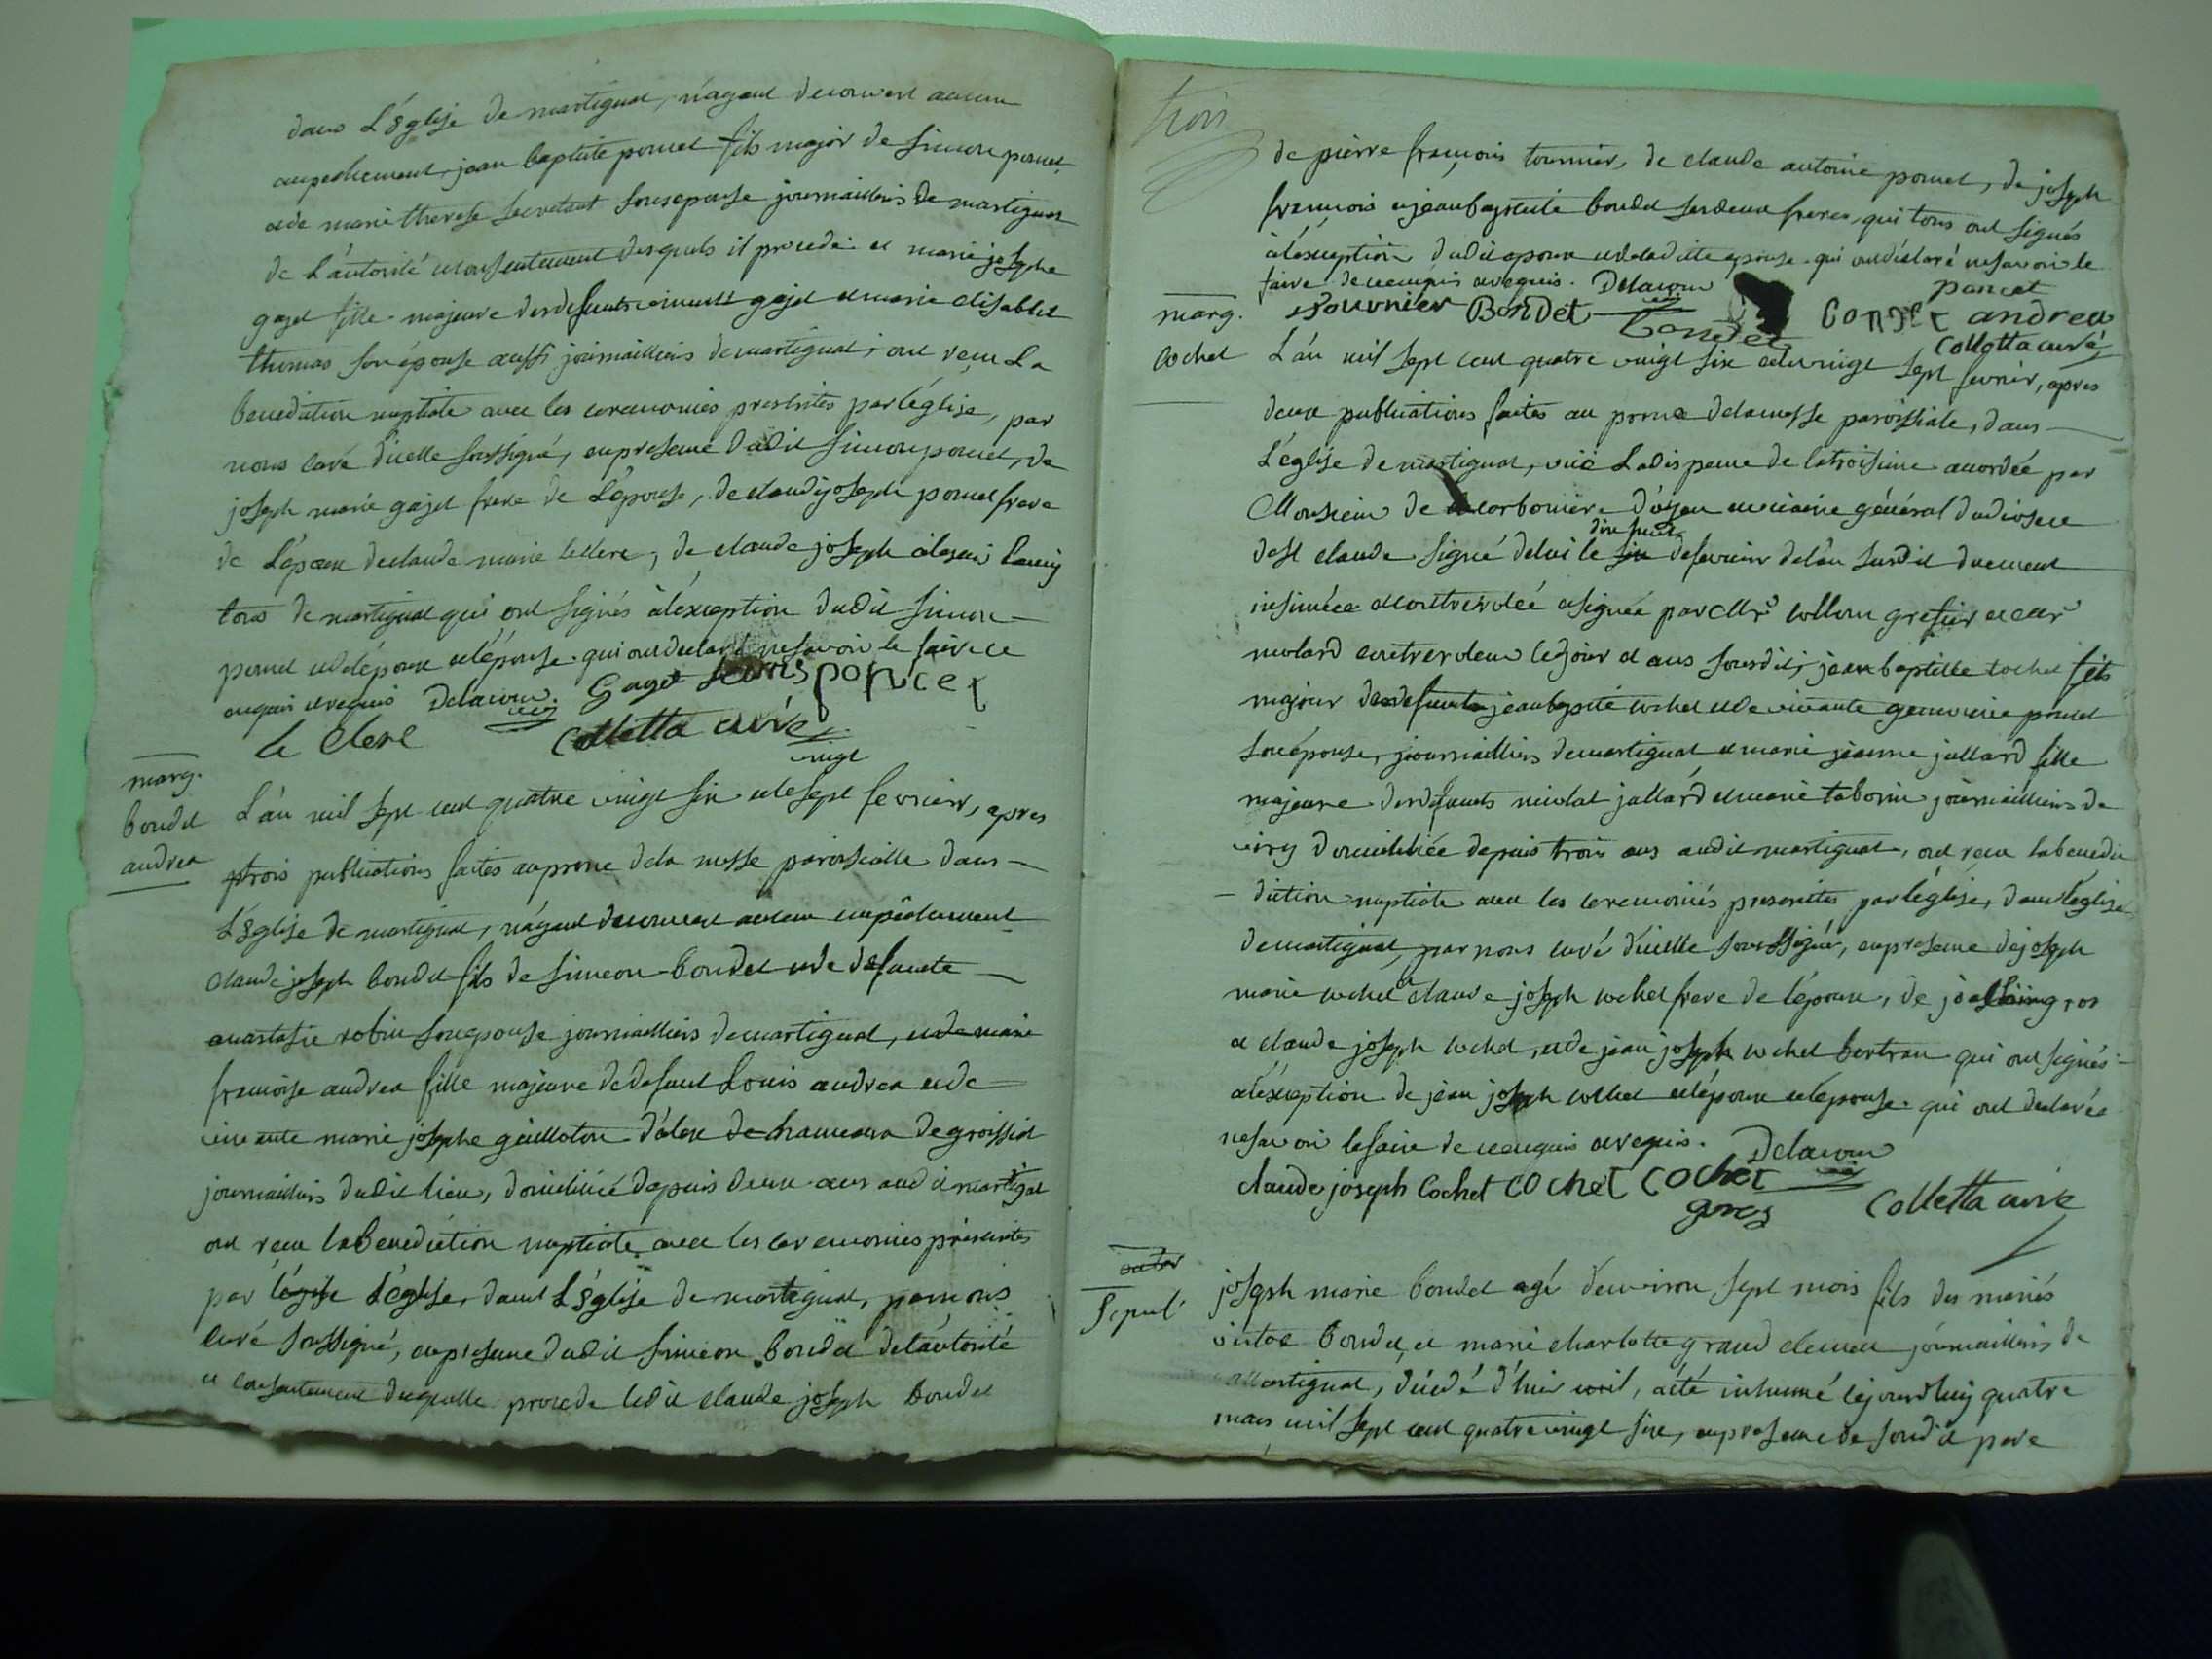 dans L'Eglise de martignat, n'ayant decouvert aucun
empechement, jean baptiste poncet fils major de simon poncet
et de marie therese secretant son epouse journailliers de martignat
de L'autorité et consentement desquels il procede et marie josephe
gajet fille majeure des defunts gajet et marie elisabbet
thomas son épouse aussi journailliers de martignat, ont reçu La
benediction nuptiale avec les ceremonies prescrites par l'église, par
nous curé d'icelle soussigné, en presence dudit simon poncet, de
joseph marie gajet frere de L'épouse, de claude joseph poncet frere
de L'époux de claude marie leclerc, de claude joseph
tous de martignat qui ont signés à l'exception dudit simon
poncet et de l'époux et l'épouse qui ont declaré ne savoir le faire ce
enquis et requis Delacour Gayet poncet
le clerc Colletta curé
vingt
marg.
boudet
andrea
L'an mil sept cent quatre vingt six et le sept fevrier, apres
trois publications faites au prone de la messe paroissialle dans
L'Eglise de martignat, n'ayant decouvert aucun empêchement
claude joseph boudet fils de simeon boudet et de defunte
anastasie robin son epouse journailliers de martignat, et de marie
françoise andrea fille majeure de defunt Louis andrea et de
vivante marie josephe guilloton d'alex de hameau de groissiat
journailliers dudit lieu, domiciliée depuis deux ans audit martignat
ont reçu la Benediction nuptiale avec les ceremonies prescrites
par l'église L'église, dans L'Eglise de martignat, par nous
curé soussigné, en presence dudit simeon boudet de l'autorité
et consentement duquelle procede ledit claude joseph boudet
trois
de pierre françois tournier, de claude antoine poncet, de joseph
françois et jean baptiste boudet ses deux freres, qui tous ont signés
à l'exception dudit epoux et de laditte epouse qui ont déclaré ne savoir le
faire de ce enquis et requis. Delacour
poncet
Bondet andrea
Colletta curé
marg.
Cochet
L'an mil sept cent quatre vingt six et le vingt sept fevrier, apres
deux publications faites au prone de la messe paroissiale, dans
L'église de martignat, vuë La dispence de la troisieme accordée par
Monsieur de corboniere doyen et vicaire général du diocese
de st claude signé de lui le six
dix huit
de fevrier de l'an susdit duement
insinuée et controrolée et signée par Mr grefier et Mr
molard controroleur le jour et ans susdits, jean baptiste cochet fils
majeur de defunt jean baptiste cochet et de vivante genevieve poncet
son épouse, journailliers de martignat et marie jeanne jullard fille
majeure des defunts nicolat jullard et marie taborin journailliers de
viry domiciliée depuis trois ans audit martignat, ont reçu la benedic
- diction nuptiale avec les ceremonies prescrites par l'église, dans l'église
de martignat, par nous curé d'icelle soussigné, en presence de joseph
marie cochet claude joseph cochet frere de l'époux, de
et claude joseph cochet, et de jean joseph cochet bertran qui ont signés
à l'exception de jean joseph cochet et l'époux et l'épouse qui ont declarée
ne savoir le faire de ce enquis et requis. Delacour
claude joseph Cochet cochet cochet
gros Colletta curé
Sepul.
joseph marie boudet agé d'environ sept mois fils des mariés
victor boudet, et marie charlotte grand clement journailliers de
martignat, décédé d'hier, a été inhumé cejourd'huy quatre
mars mil sept cent quatre vingt six, en presence de sondit pere